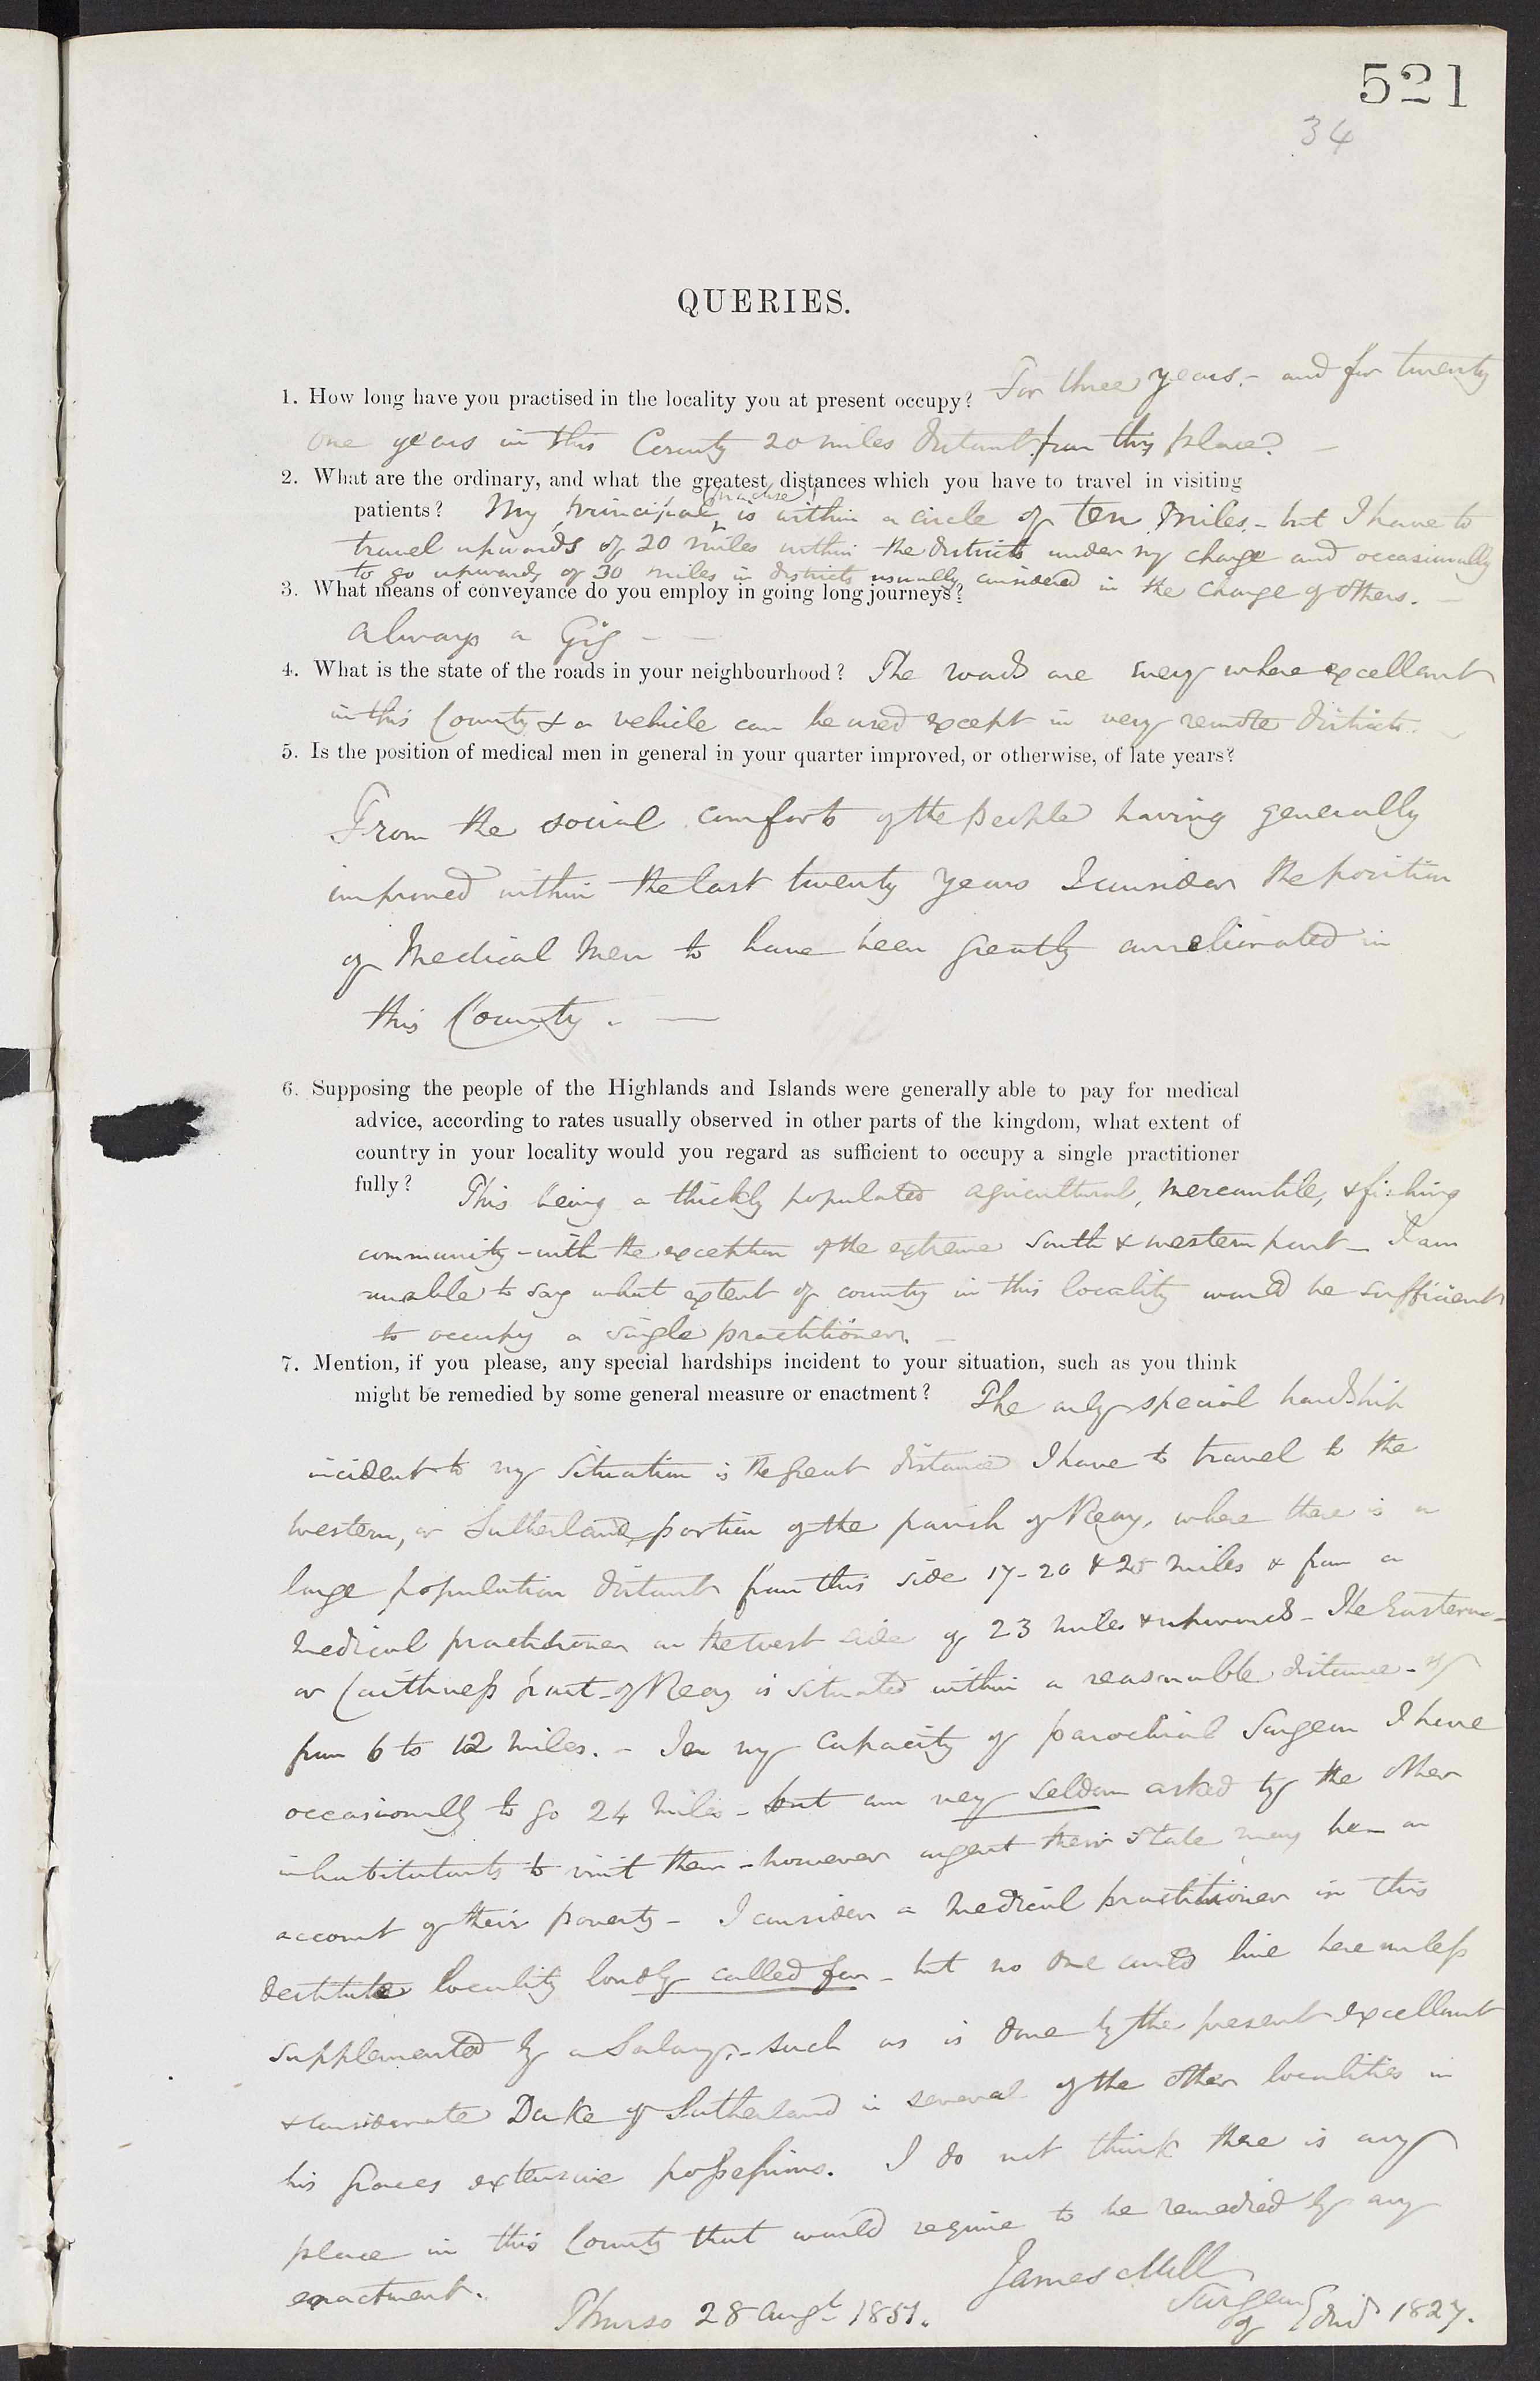 521
34
QUERIES.
1. How long have you practised in the locality you at present occupy? For three years. - and for twenty
one years in this County 20 miles distant from this place. -
2. What are the ordinary, and what the greatest distances which you have to travel in visiting
practise
patients? My principal is within a circle of ten miles - but I have to
travel upwards of 20 miles within the districts under my charge and occasionally
to go upwards of 30 miles in districts usually considered in the charge of others. -
3. What means of conveyance do you employ in going long journeys?
Always a Gig - -
4. What is the state of the roads in your neighbourhood? The roads are every where excellent
in this County & a vehicle can be used except in very remote districts.
5. Is the position of medical men in general in your quarter improved, or otherwise, of late years?
From the social comforts of the people having generally
improved within the last twenty years I consider the position
of Medical Men to have been greatly ameliorated in
this County. -
6. Supposing the people of the Highlands and Islands were generally able to pay for medical
advice, according to rates usually observed in other parts of the kingdom, what extent of
country in your locality would you regard as sufficient to occupy a single practitioner
fully? This being a thickly populated agricultural, mercantile, & fishing
community - with the exception of the extreme South & western part - I am
unable to say what extent of country in this locality would be sufficient
to occupy a single practitioner. -
7. Mention, if you please, any special hardships incident to your situation, such as you think
might be remedied by some general measure or enactment? The only special hardship
incident to my situation is the great distance I have to travel to the
western, or Sutherland portion of the parish of Reay, where there is a
large population distant from this side 17 - 20 & 25 miles & from a
medical practitioner on the west side of 23 miles & upwards - The Eastern -
or Caithness part - of Reay is situated within a reasonable distance - of
from 6 to 12 miles. - In my capacity of parochial Surgeon I have
occasionally to go 24 miles - but am very seldom asked by the other
inhabitutants to visit them - however urgent their state may be - on
account of their poverty - I consider a medical practitioner in this
destitute locality loudly called for - but no one could live here unless
supplemented by a Salary, - such as is done by the present excellent
& considerate Duke of Sutherland in several of the other localities in
his Graces extensive possessions. I do not think there is any
place in this County that would require to be remedied by any
enactment.
James Mill
Surgeon
Thurso 28 Augt 1851.
of Edinr 1827.